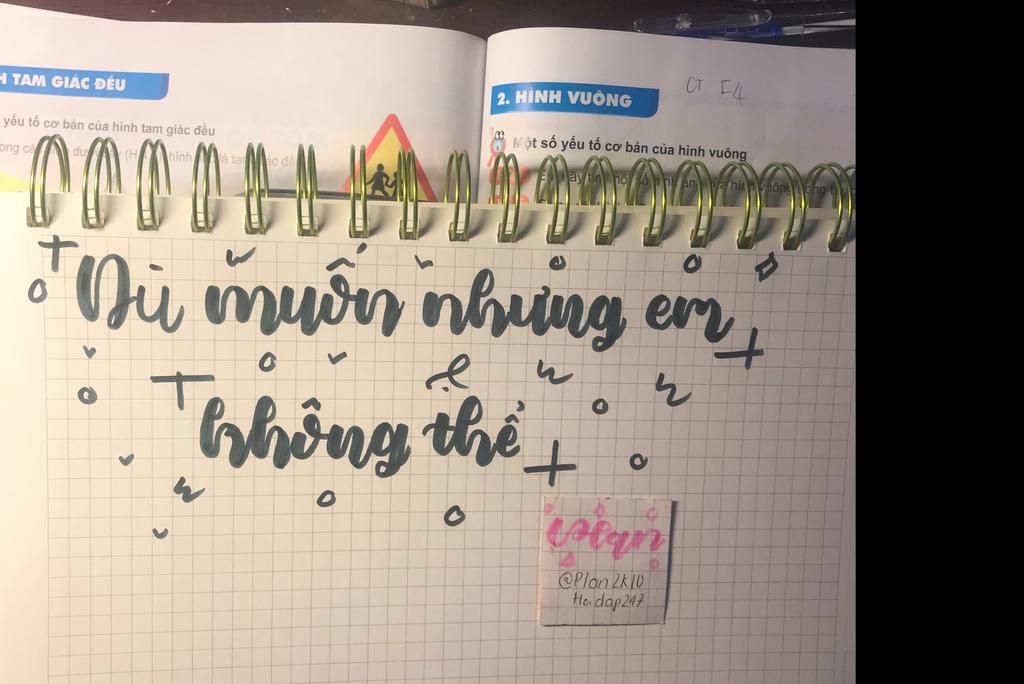 H TAM GIÁC ĐỀU
yếu tố cơ bản của hình tam giác đều
2. HÌNH VUÔNG
CT F4
Một số yếu tố cơ bản của hình vuông
Dù muốn nhưng em
không thể
Plan
@Plan2k10
Hoidap247